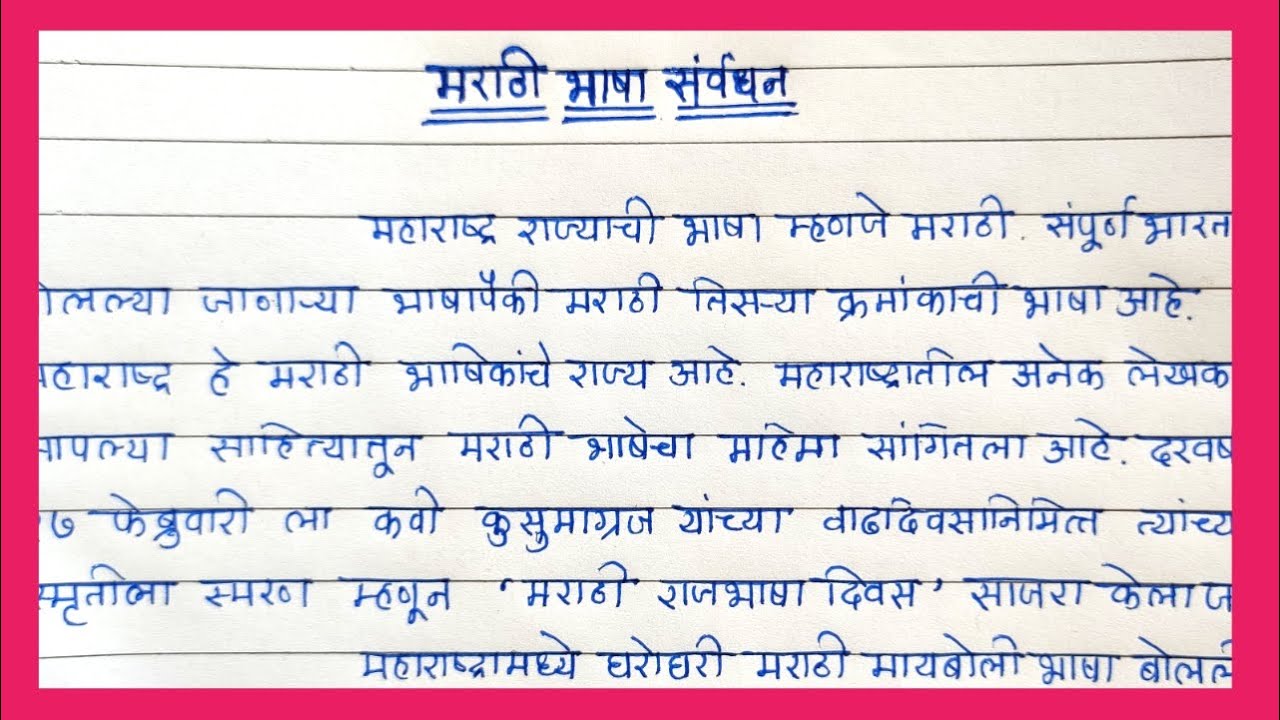 मराठी भाषा संर्वधन
महाराष्ट्र राज्याची भाषा म्हणजे मराठी. संपूर्ण भारत
ोलल्या जाणाऱ्या भाषापैकी मराठी तिसऱ्या क्रमांकाची भाषा आहे.
महाराष्ट्र हे मराठी भाषिकांचे राज्य आहे. महाराष्ट्रातील अनेक लेखक
आपल्या साहित्यातून मराठी भाषेचा महिमा सांगितला आहे. दरवष
७ फेब्रुवारी ला कवी कुसुमाग्रज यांच्या वाढदिवसानिमित्त त्यांच्य
स्मृतीला स्मरण म्हणून 'मराठी राजभाषा दिवस' साजरा केला ज
महाराष्ट्रामध्ये घरोघरी मराठी मायबोली भाषा बोलल